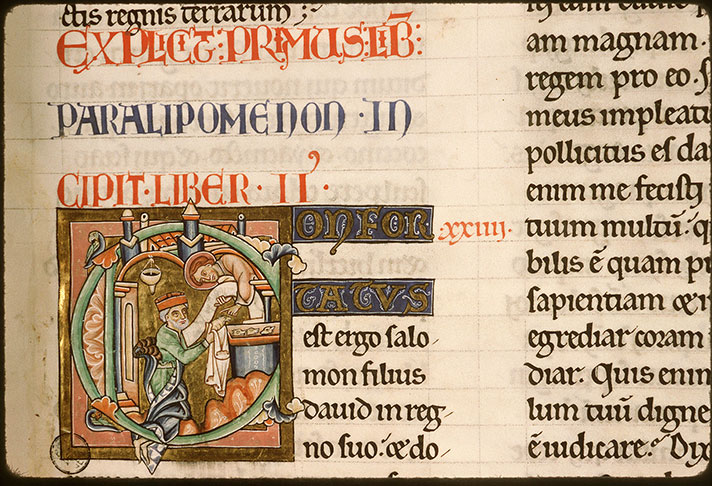 ctis regnis terrarum;
EXPLICIT: PRIMUS: LIB̅:
PARALIPOMENON · IN
CIPIT · LIBER · II’·
CONFOR · xxiiii ·
TATUS
est ergo salo-
mon filius
dauid in reg-
no suo: ⁊ do-
am magnam.
regem pro eo. S
meus impleat
pollicitus es da
enim me fecisti
tuum multū: q
bilis ē quam p
sapientiam
egrediar coram
diar. Quis enim
lum tuū digne
ē iudicare. Dix